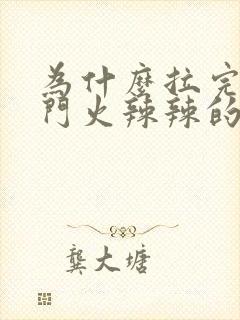 为什麼拉完
門火辣辣的
龔大塘